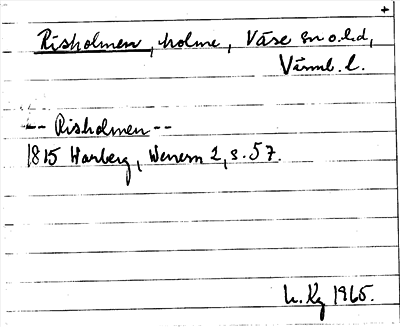 +
Risholmen, holme, Väse sn o. l:d,
Värml. l.
-- Risholmen --
1815 Warberg, Wenern 2, s. 57.
1965.